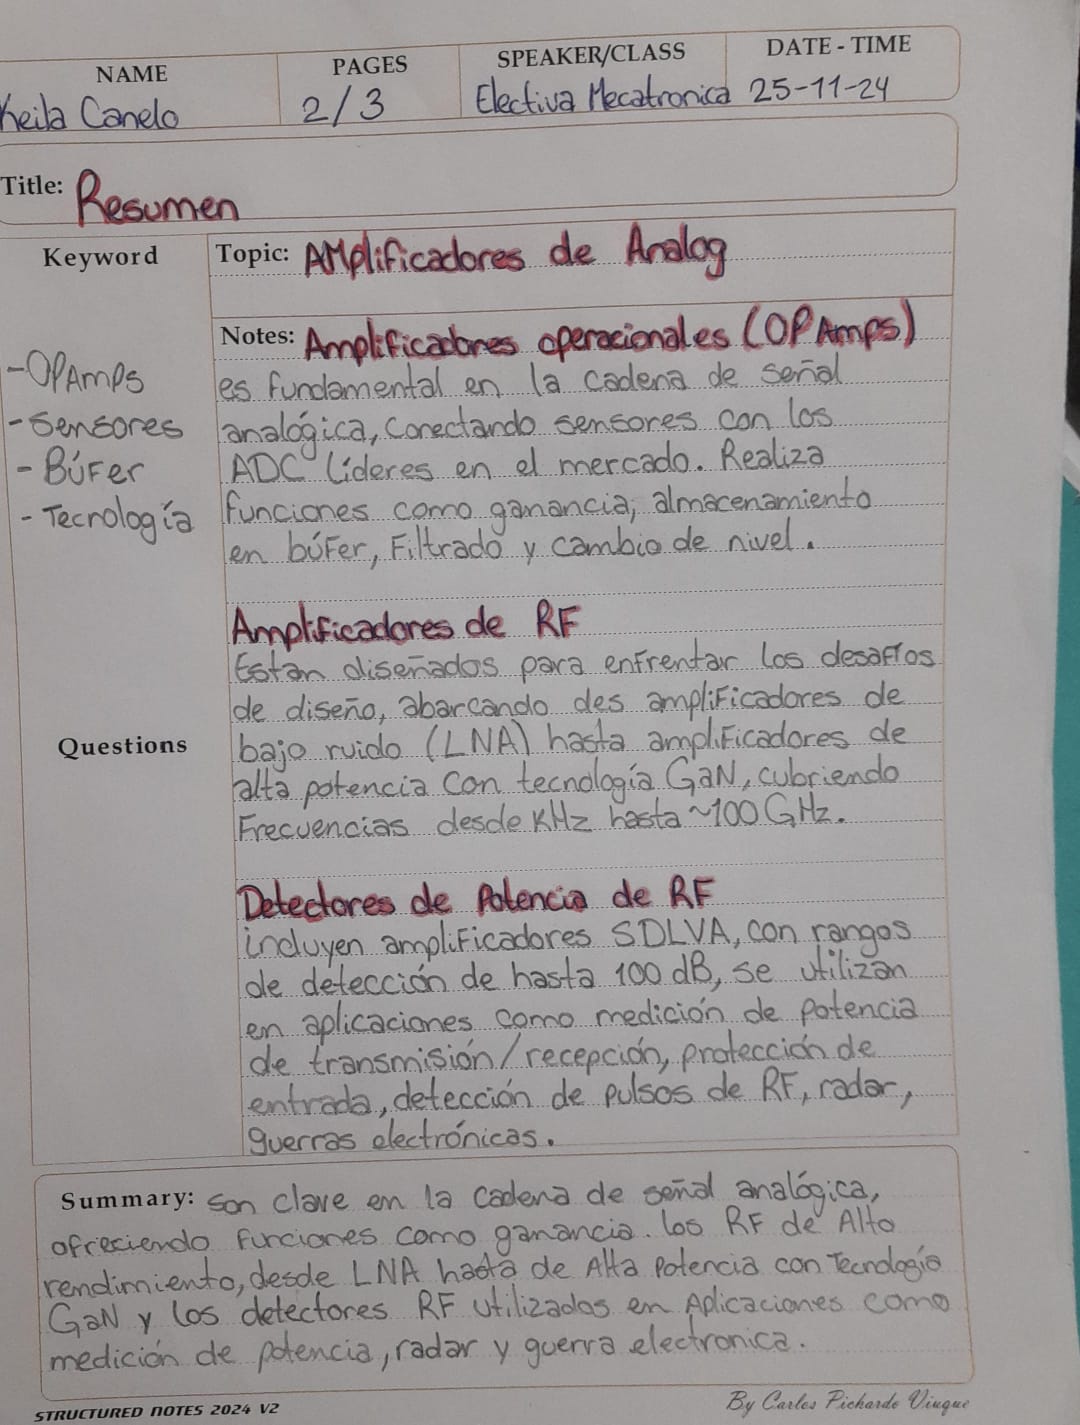 NAME PAGES SPEAKER/CLASS DATE - TIME
Keila Canelo 2/3 Electiva Mecatronica 25-11-24
Title: Resumen
Keyword
Topic: Amplificadores de Analog
- OPAmps
- Sensores
- Búfer
- Tecnología
Notes: Amplificadores operacionales (OPAmps)
es fundamental en la cadena de señal
analógica, conectando sensores con los
ADC líderes en el mercado. Realiza
funciones como ganancia, almacenamiento
en búfer, Filtrado y cambio de nivel.
Amplificadores de RF
Estan diseñados para enfrentar los desafíos
de diseño, abarcando des amplificadores de
bajo ruido (LNA) hasta amplificadores de
alta potencia con tecnología GaN, cubriendo
Frecuencias desde KHz hasta ~100 GHz.
Questions
Detectores de Potencia de RF
incluyen amplificadores SDLVA, con rangos
de detección de hasta 100 dB, se utilizan
en aplicaciones como medición de potencia
de transmisión/recepción, protección de
entrada, detección de pulsos de RF, radar,
guerras electrónicas.
Summary: son clave en la cadena de señal analógica,
ofreciendo funciones como ganancia. los RF de Alto
rendimiento, desde LNA hasta de Alta Potencia con Tecnología
GaN y los detectores RF utilizados en Aplicaciones como
medición de potencia, radar y guerra electronica.
STRUCTURED NOTES 2024 V2
By Carlos Pichardo Viuque